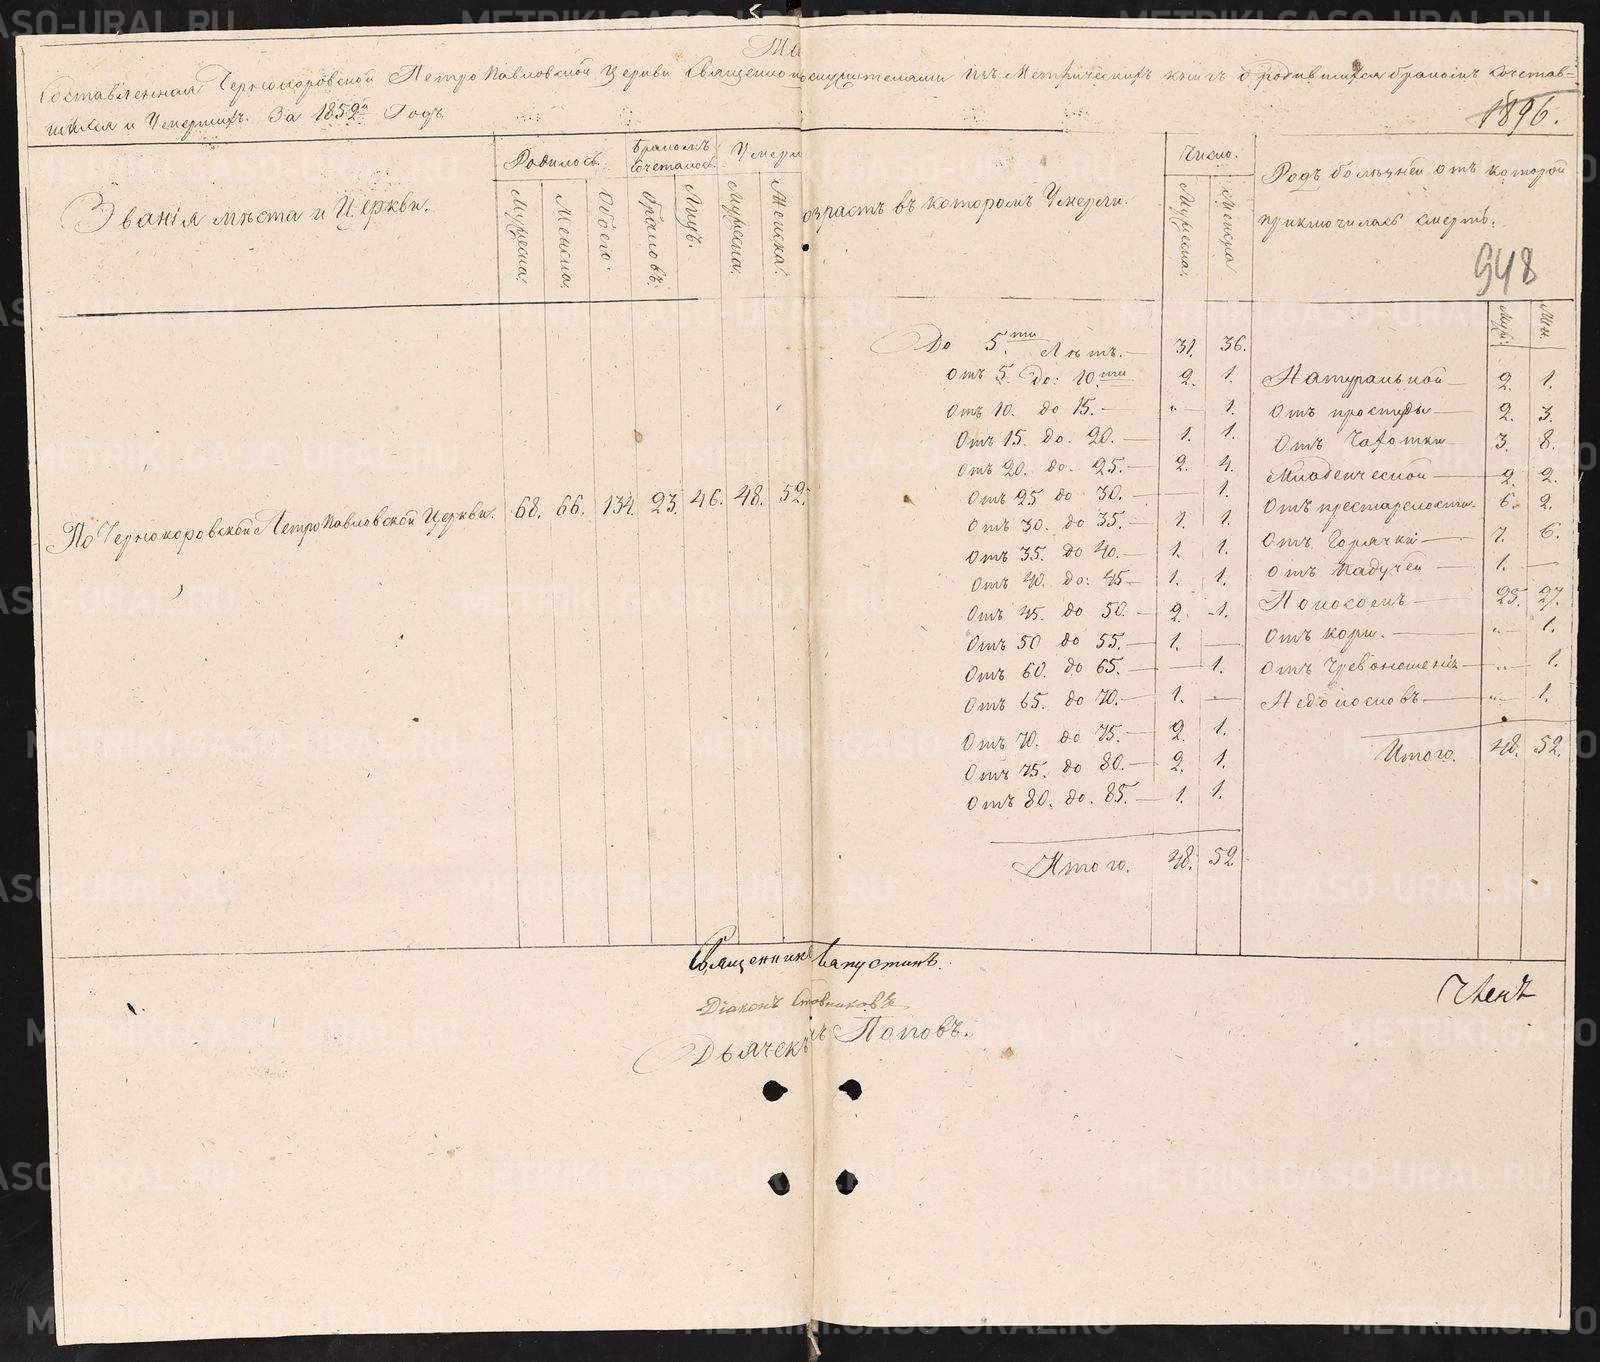 Та
Составленная Чернокоровской Петро Павловской Церкви Священнослужителями изъ Метрическихъ книгъ о родившихся бракомъ сочетав-
шихся и Умершихъ. За 1852й Годъ
1896.
948
Званія мѣста и Церкви.
Родилось.
Бракомъ Сочеталось.
Умерл
Мужеска.
Женска.
Обоего.
Браковъ.
Лицъ.
Мужеска.
Женска.
озрастъ въ которомъ Умерли.
Число.
Мужеска.
Женска
Родъ болѣзней отъ которой
приключилась смерть.
Муж.
Жен.
По Чернокоровской Петро Павловской Церкви. 68. 66. 134. 23. 46. 48. 52.
До 5.ти Лѣтъ.— 31. 36.
Отъ 5. до: 10.ти 2. 1.
Отъ 10. до 15.— „— 1.
Отъ 15. до. 20.— 1. 1.
Отъ 20. до. 25.— 2. 4.
Отъ 25 до 30.— — 1.
Отъ 30. до 35.— 1. 1.
Отъ 35. до 40.— 1. 1.
Отъ 40. до: 45— 1. 1.
Отъ 45. до 50.— 2. 1.
Отъ 50 до 55.— 1. —
Отъ 60. до 65.— — 1.
Отъ 65. до 70.— 1. —
Отъ 70. до 75.— 2. 1.
Отъ 75. до 80.— 2. 1.
Отъ 80. до. 85.— 1. 1.
Итого. 48. 52
Натуральной— 2. 1.
Отъ простуды— 2. 3.
Отъ Чахотки 3. 8.
Младенческой— 2. 2.
Отъ престарелости. 6. 2.
Отъ Горячки— 7. 6.
Отъ Падучей— 1. —
Поносомъ— 25. 27.
Отъ кори.— „— 1.
Отъ Чревоношенія— „— 1.
Недоносковъ— „— 1.
Итого. 48. 52.
Священникъ Капустинъ.
Діаконъ
Дьячекъ Поповъ.
Членъ
METRIKI.GASO-URAL.RU